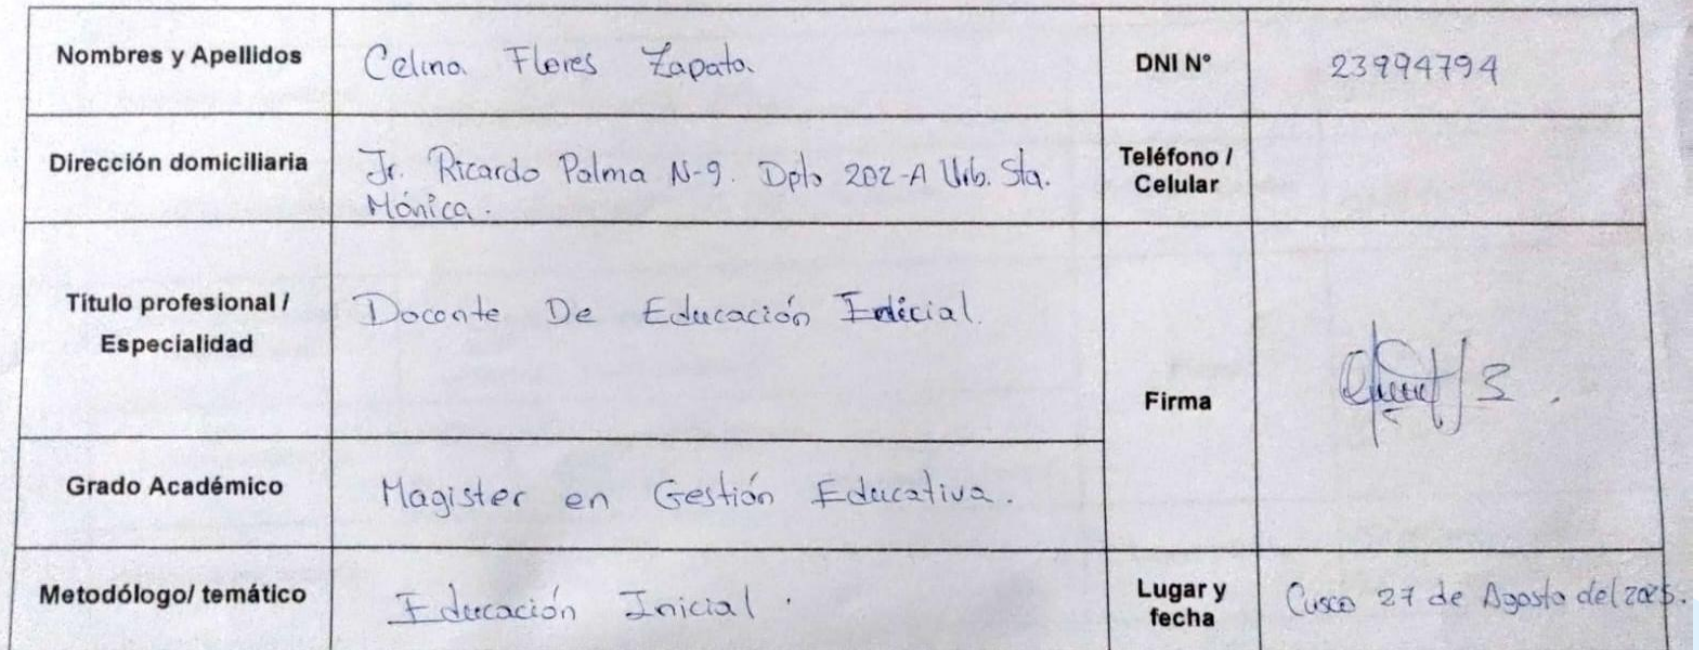 Nombres y Apellidos
Celina Flores Zapata
DNI N°
23994794
Dirección domiciliaria
Jr. Ricardo Palma N-9. Dpto 202-A Urb. Sta.
Mónica.
Teléfono /
Celular
Título profesional /
Especialidad
Docente De Educación Inicial.
Firma
Grado Académico
Magister en Gestión Educativa.
Metodólogo/ temático
Educación Inicial.
Lugar y
fecha
Cusco 27 de Agosto del 2025.